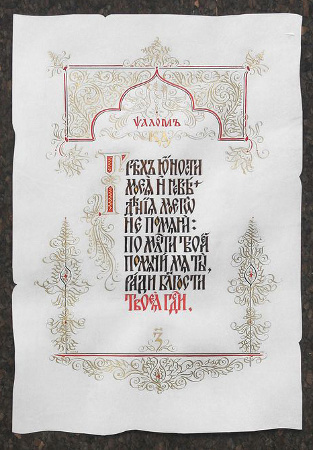 ѰАЛОМЪ
КД
ГРѢХЪ ЮНОСТИ
МОЕѦ И НЕВѢ-
ДѢНІѦ МОЕГѠ
НЕ ПОМѦНИ:
ПО МЛТИ ТВОЕЙ
ПОМѦНИ МѦ ТЫ,
РАДИ БЛГОСТИ
ТВОЕѦ ГДИ.
З